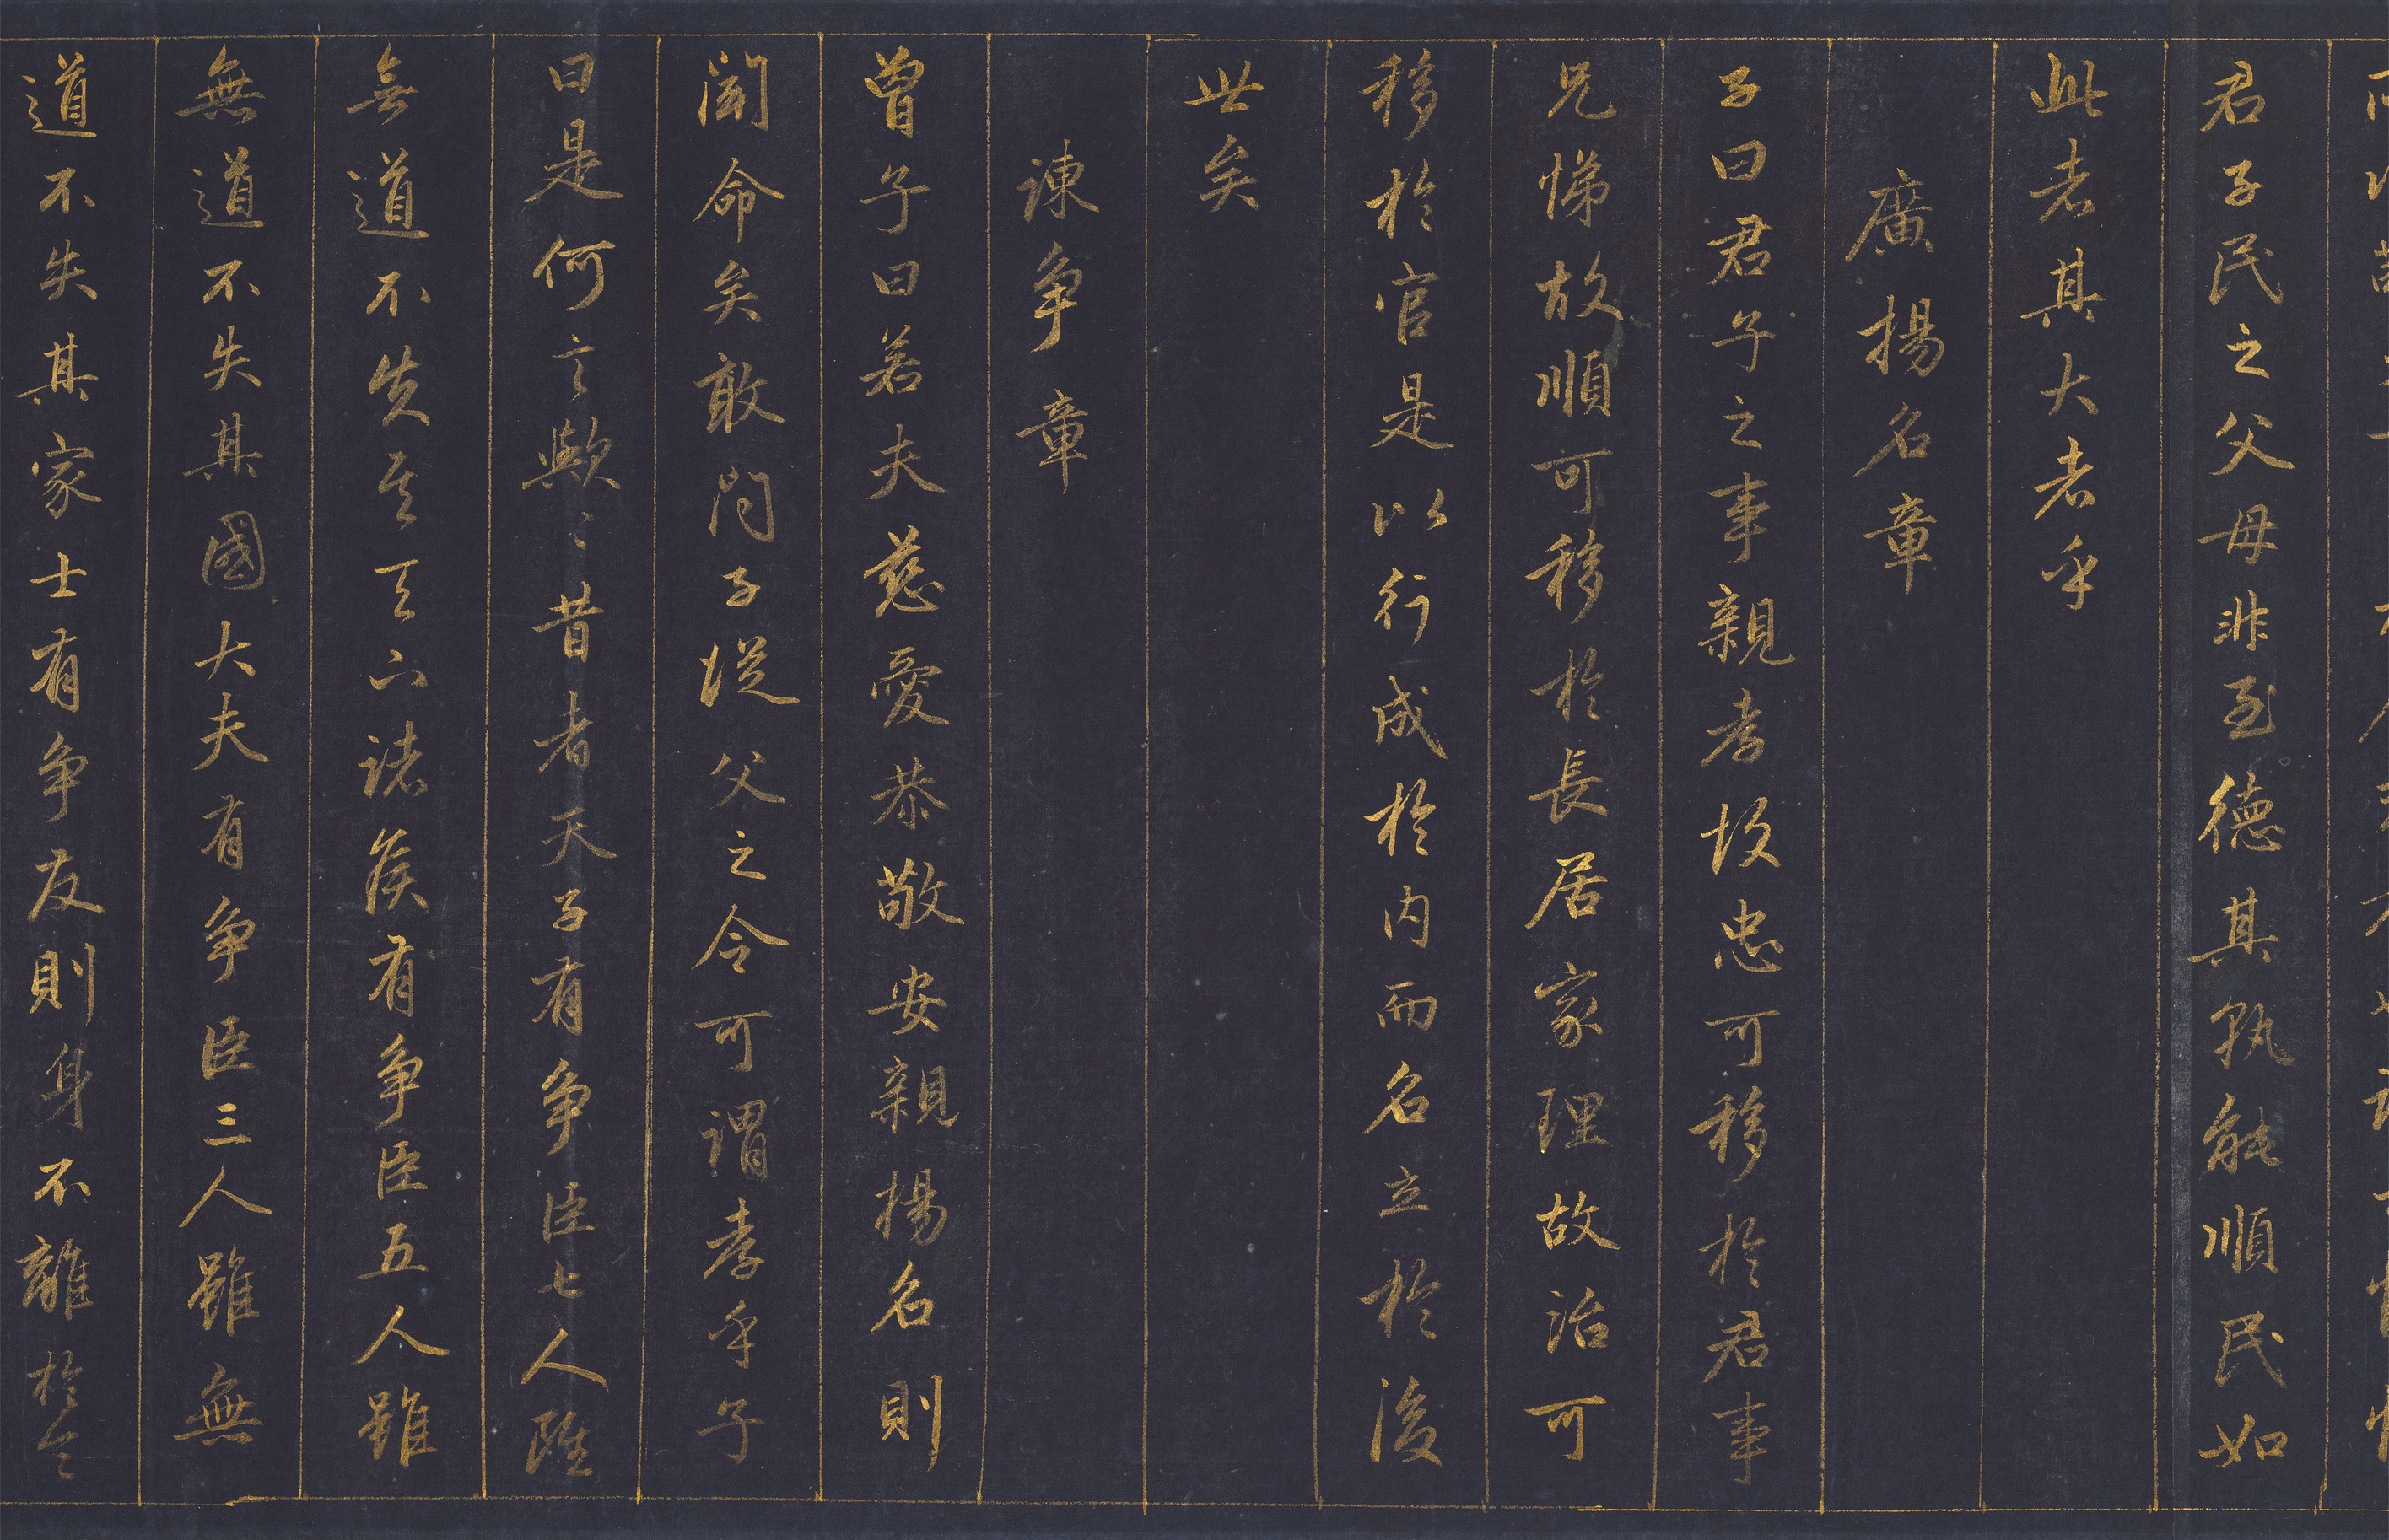 君子民之父母非至德其孰能順民如
此者其大者乎
廣揚名章
子曰君子之事親孝故忠可移於君事
兄悌故順可移於長居家理故治可
移於官是以行成於內而名立於後
世矣
諫爭章
曾子曰若夫慈愛恭敬安親揚名則
聞命矣敢問子從父之令可謂孝乎子
曰是何言歟〻昔者天子有爭臣七人雖
無道不失其天下諸侯有爭臣五人雖
無道不失其國大夫有爭臣三人雖無
道不失其家士有爭友則身不離於令